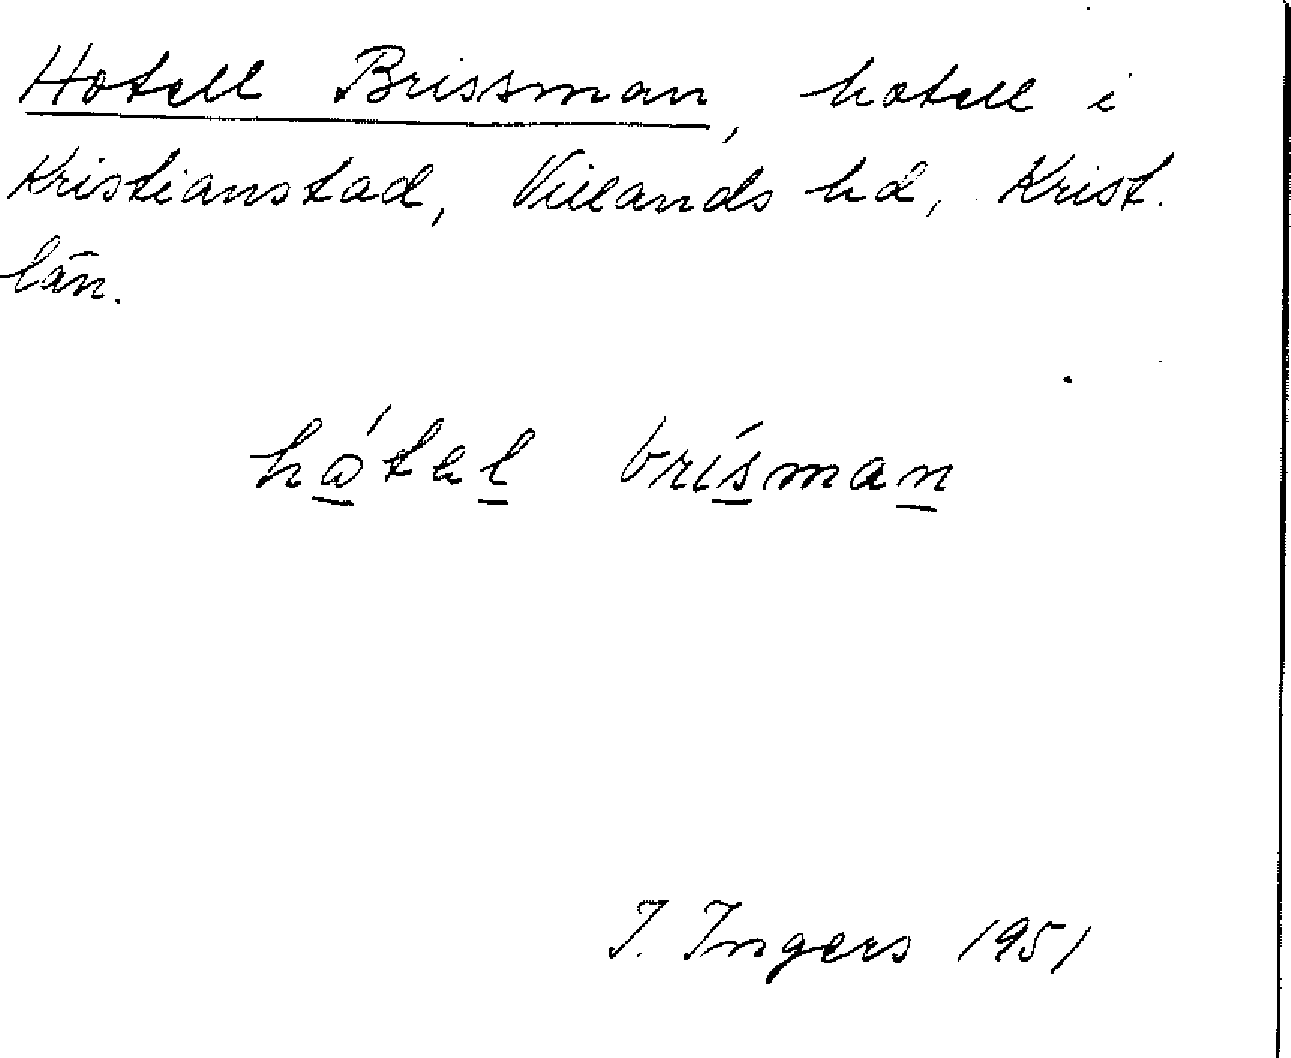 Hotell Brissman, hotell i
Kristianstad, Villands hd, Krist.
län.
hó̲tel̲ brís̲man̲
I. Ingers 1951